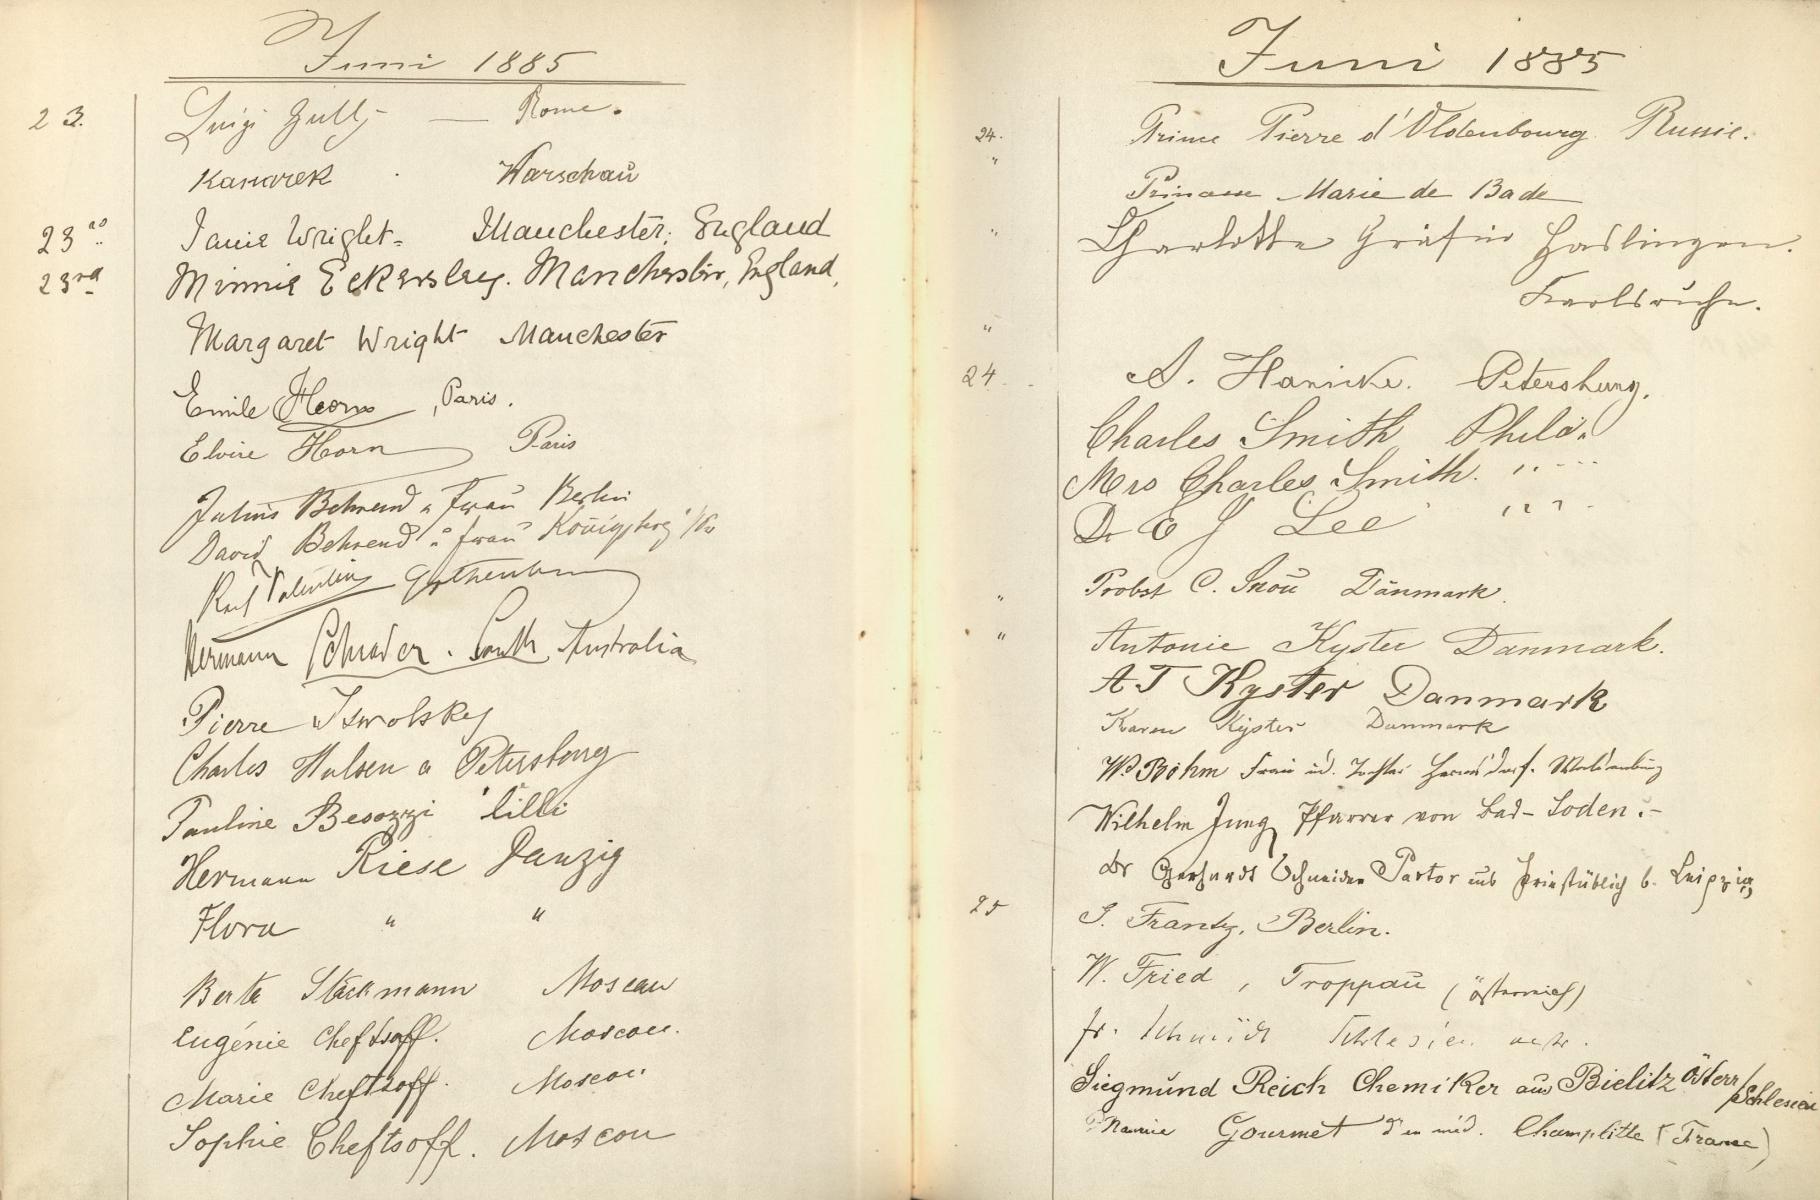 Juni 1885
23. Luigi — Rome.
Kanarek Warschau
23 Janie Wright. Manchester. England
23rd Minnie Eckersley. Manchester, England,
Margaret Wright Manchester
Emile Horn, Paris.
Elvire Horn Paris
Julius Behrend u Frau Berlin
David Behrend u frau Königsberg i/Pr
Karl Valentin Gothenburg
Hermann Schrader. South Australia
Pierre Iswolsky
Charles Hulsen a Petersbourg
Pauline Besozzi Lilli
Hermann Riese Danzig
Flora " "
Berta Stackmann Moscau
Eugénie Cheftsoff. Moscou.
Marie Cheftsoff. Moscou
Sophie Cheftsoff. Moscou
Juni 1885
24. Prince Pierre d'Oldenbourg. Russie.
" Princesse Marie de Bade
" Charlotte Gräfin Haslingen.
Karlsruhe.
"
24. A. Petersburg.
Charles Smith Phila.
Mrs Charles Smith. " "
Dr E J Lee " "
" Probst C. Skou Danmark.
" Antonie Kyster Danmark.
A T Kyster Danmark
Karen Kyster Danmark
W. Böhm Frau ud. Tochter Hermsdorf. Waldenburg
Wilhelm Jung Pfarrer von Bad-Soden.-
Dr Gerhardt Schneider Pastor aus b. Leipzig
25 J. Frantz, Berlin.
W. Fried, Troppau (Österreich)
fr. Schmidt Schlesien
Siegmund Reich Chemiker aus Bielitz Österr/Schlesien
Gourmet d en méd. Champlitte (France)